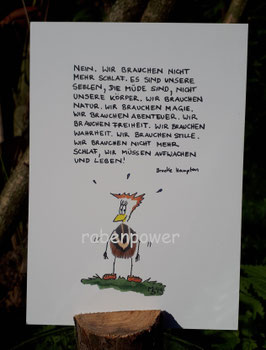 NEIN. WIR BRAUCHEN NICHT
MEHR SCHLAF. ES SIND UNSERE
SEELEN, DIE MÜDE SIND, NICHT
UNSERE KÖRPER. WIR BRAUCHEN
NATUR. WIR BRAUCHEN MAGIE.
WIR BRAUCHEN ABENTEUER. WIR
BRAUCHEN FREIHEIT. WIR BRAUCHEN
WAHRHEIT. WIR BRAUCHEN STILLE.
WIR BRAUCHEN NICHT MEHR
SCHLAF, WIR MÜSSEN AUFWACHEN
UND LEBEN!
Brooke Hampton
rabenpower